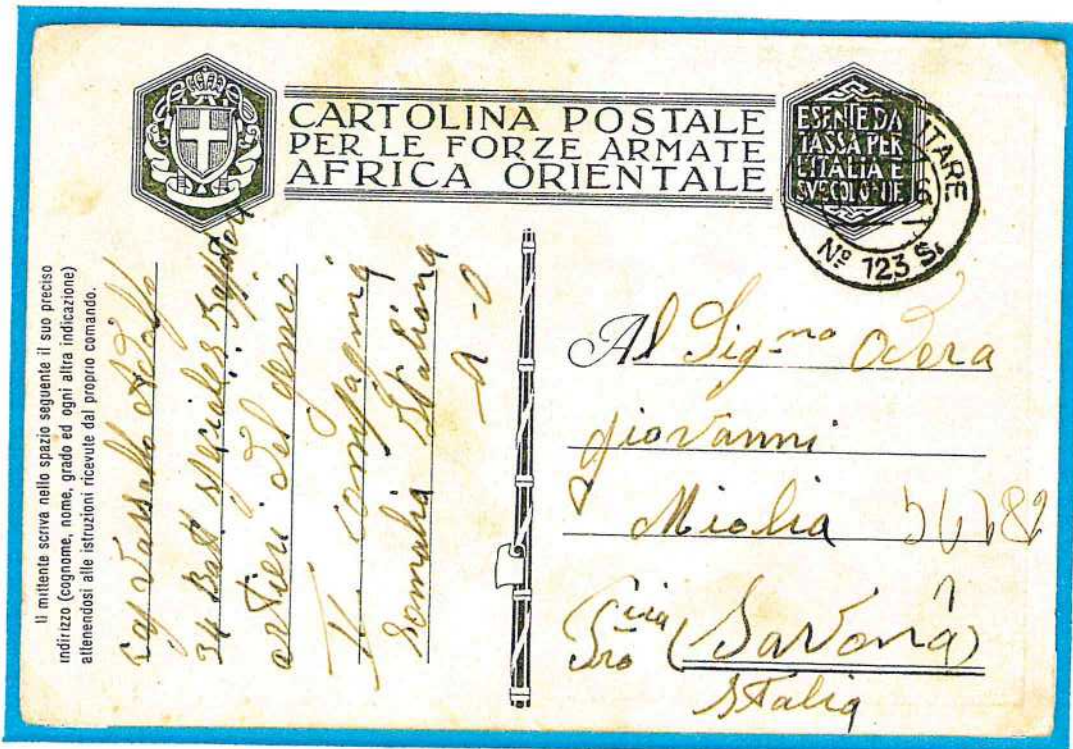 CARTOLINA POSTALE
PER LE FORZE ARMATE
AFRICA ORIENTALE
ESENTE DA
TASSA PER
L'ITALIA E
SUE COLONIE
ITARE
6
Nº 123 S
Il mittente scriva nello spazio seguente il suo preciso
indirizzo (cognome, nome, grado ed ogni altra indicazione)
attenendosi alle istruzioni ricevute dal proprio comando.
Vassallo
34 Batt speciale
artieri del genio
compagnia
Somalia Italiana
A-O
Al Sig-mo Odera
giovanni
Mioglia
Savona
Italia